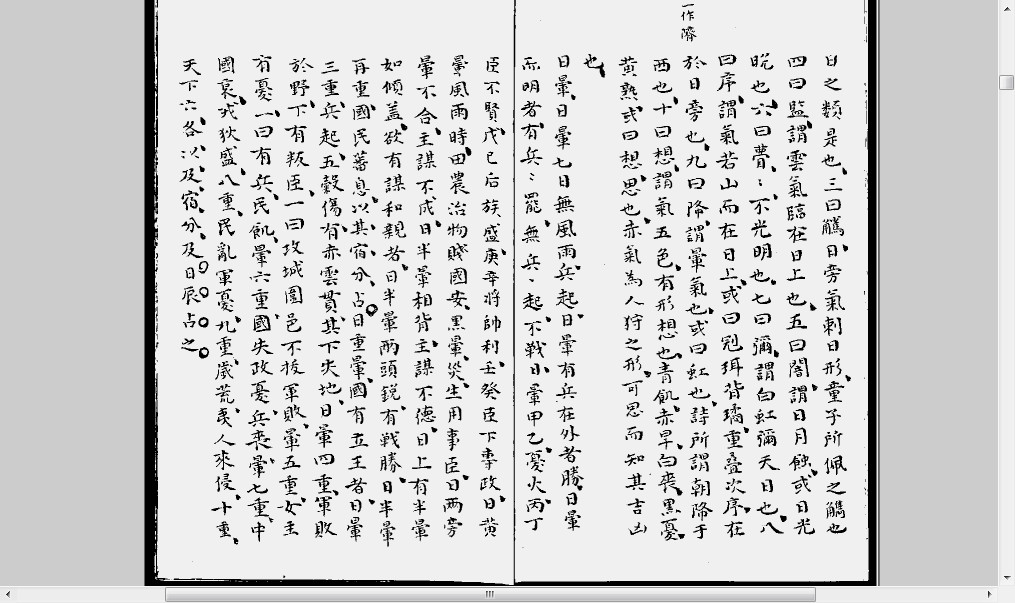 一作隮
日之類是也三曰觿日旁氣刺日形童子所佩之觿也
四曰監謂雲氣臨在日上也五曰闇謂日月蝕或日光
晈也六曰瞢〻不光明也七曰彌謂白虹彌天日也八
曰序謂氣若山而在日上或曰冠珥背璚重疊次序在
於日旁也九曰隮謂暈氣也或曰虹也詩所謂朝隮于
西也十曰想謂氣五色有形想也青飢赤旱白喪黑憂
黄熟或曰想思也赤氣為人狩之形可思而知其吉凶
也
日暈日暈七日無風雨兵起日暈有兵在外者勝日暈
而明者有兵〻罷無兵〻起不戰日暈甲乙憂火丙丁
臣不賢戊己后族盛庚辛將帥利壬癸臣下專政日黄
暈風雨時田農治物賤國安黑暈災生用事臣日兩旁
暈不合主謀不成日半暈相背主謀不德日上有半暈
如傾盖欲有謀和親者日半暈兩頭銳有戰勝日半暈
再重國民蕃息以其宿分占日重暈國有立王者日暈
三重兵起五穀傷有赤雲貫其下失地日暈四重軍敗
於野下有叛臣一曰攻城圍邑不拔軍敗暈五重女主
有憂一曰有兵民飢暈六重國失政憂兵喪暈七重中
國哀戎狄盛八重民亂軍憂九重歲荒夷人來侵十重
天下亡各以及宿分及日辰占之